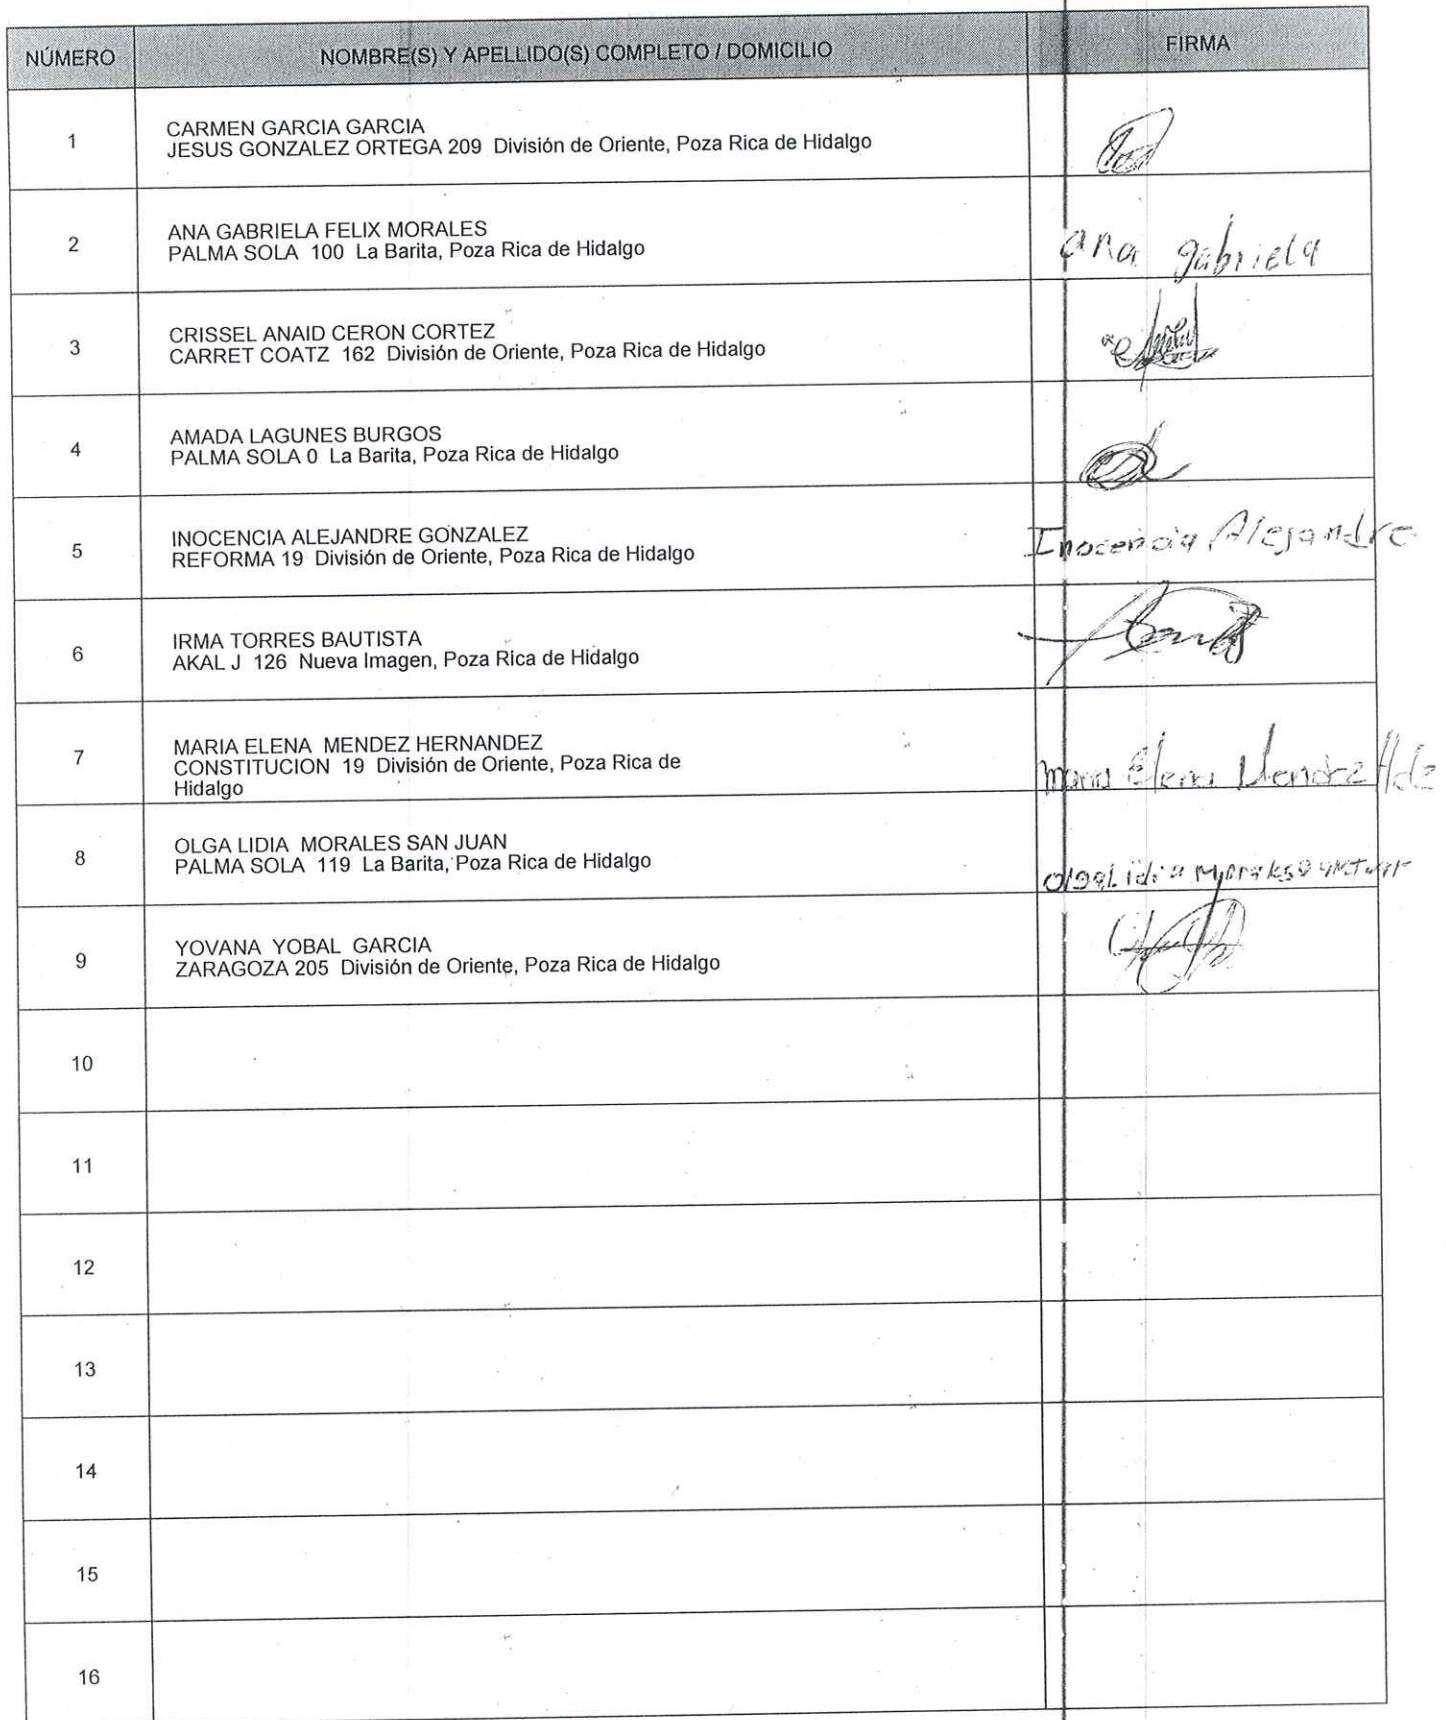 NÚMERO NOMBRE(S) Y APELLIDO(S) COMPLETO / DOMICILIO FIRMA
1 CARMEN GARCIA GARCIA
JESUS GONZALEZ ORTEGA 209 División de Oriente, Poza Rica de Hidalgo
2 ANA GABRIELA FELIX MORALES
PALMA SOLA 100 La Barita, Poza Rica de Hidalgo
ana gabriela
3 CRISSEL ANAID CERON CORTEZ
CARRET COATZ 162 División de Oriente, Poza Rica de Hidalgo
4 AMADA LAGUNES BURGOS
PALMA SOLA 0 La Barita, Poza Rica de Hidalgo
5 INOCENCIA ALEJANDRE GONZALEZ
REFORMA 19 División de Oriente, Poza Rica de Hidalgo
Inocencia Alejandre
6 IRMA TORRES BAUTISTA
AKAL J 126 Nueva Imagen, Poza Rica de Hidalgo
7 MARIA ELENA MENDEZ HERNANDEZ
CONSTITUCION 19 División de Oriente, Poza Rica de
Hidalgo
Maria Elena Mendez Hdz
8 OLGA LIDIA MORALES SAN JUAN
PALMA SOLA 119 La Barita, Poza Rica de Hidalgo
olga Lidia
9 YOVANA YOBAL GARCIA
ZARAGOZA 205 División de Oriente, Poza Rica de Hidalgo
10
11
12
13
14
15
16